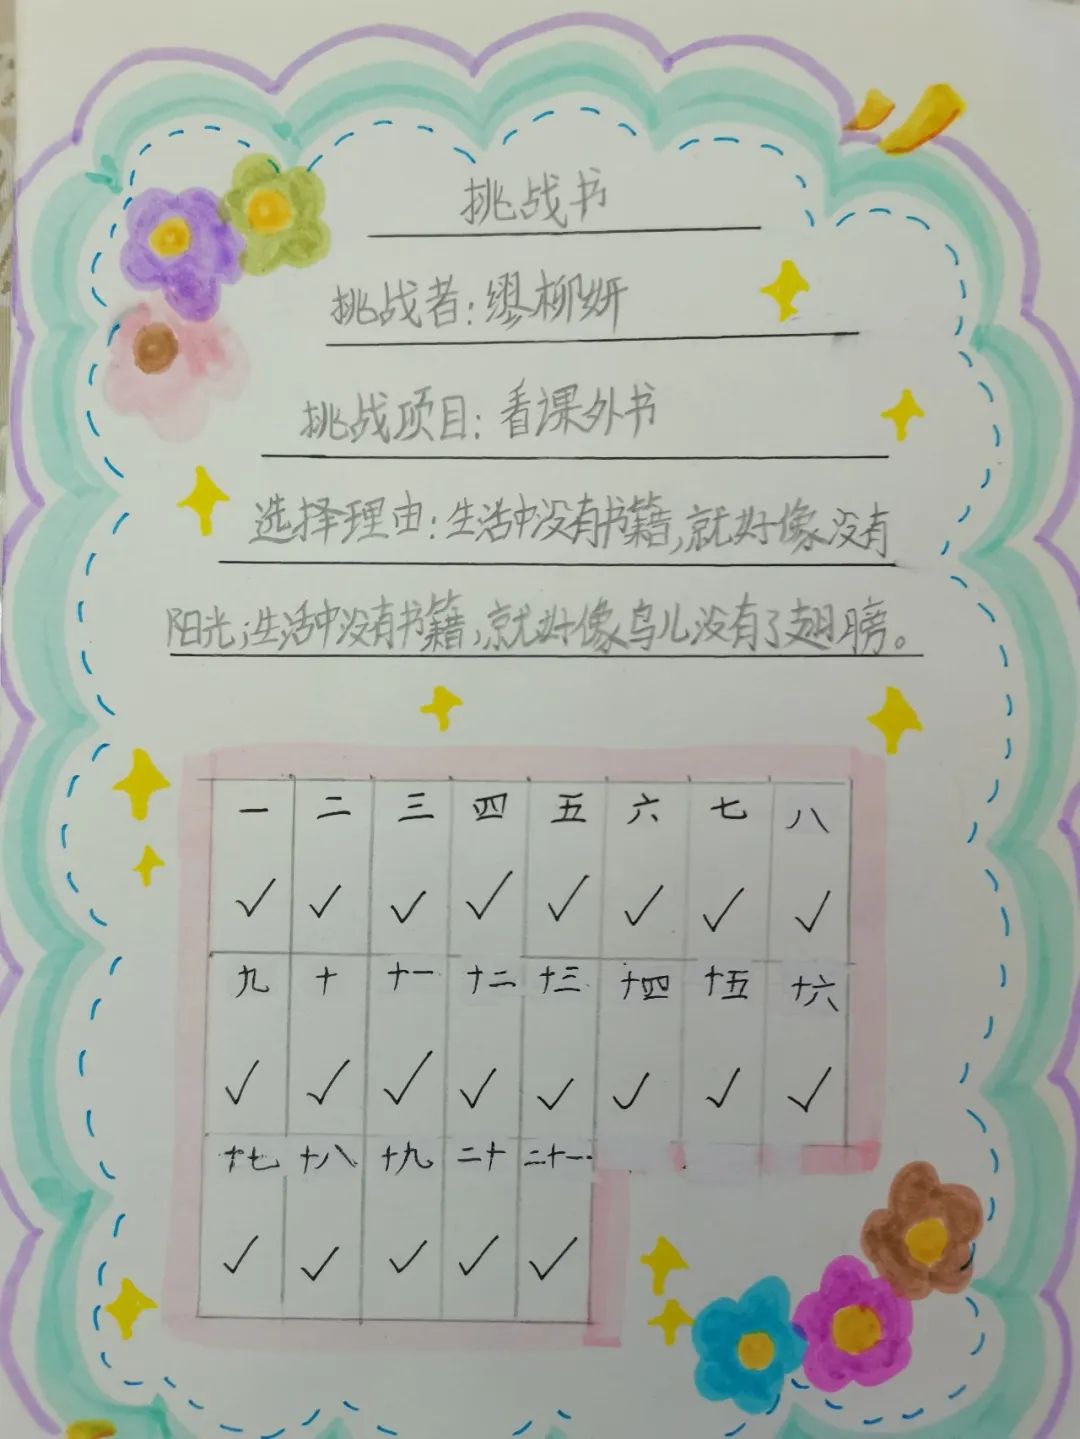 挑战书
挑战者：缪柳妍
挑战项目：看课外书
选择理由：生活中没有书籍，就好像没有
阳光；生活中没有书籍，就好像鸟儿没有了翅膀。
一 二 三 四 五 六 七 八
✓ ✓ ✓ ✓ ✓ ✓ ✓ ✓
九 十 十一 十二 十三 十四 十五 十六
✓ ✓ ✓ ✓ ✓ ✓ ✓ ✓
十七 十八 十九 二十 二十一
✓ ✓ ✓ ✓ ✓